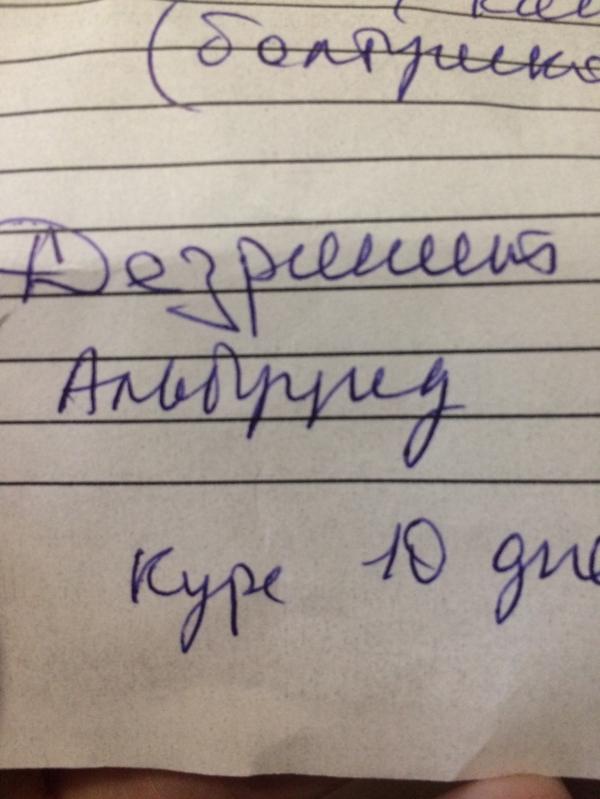 (болтушка
Дезринит
Альбуцид
Курс 10 дне